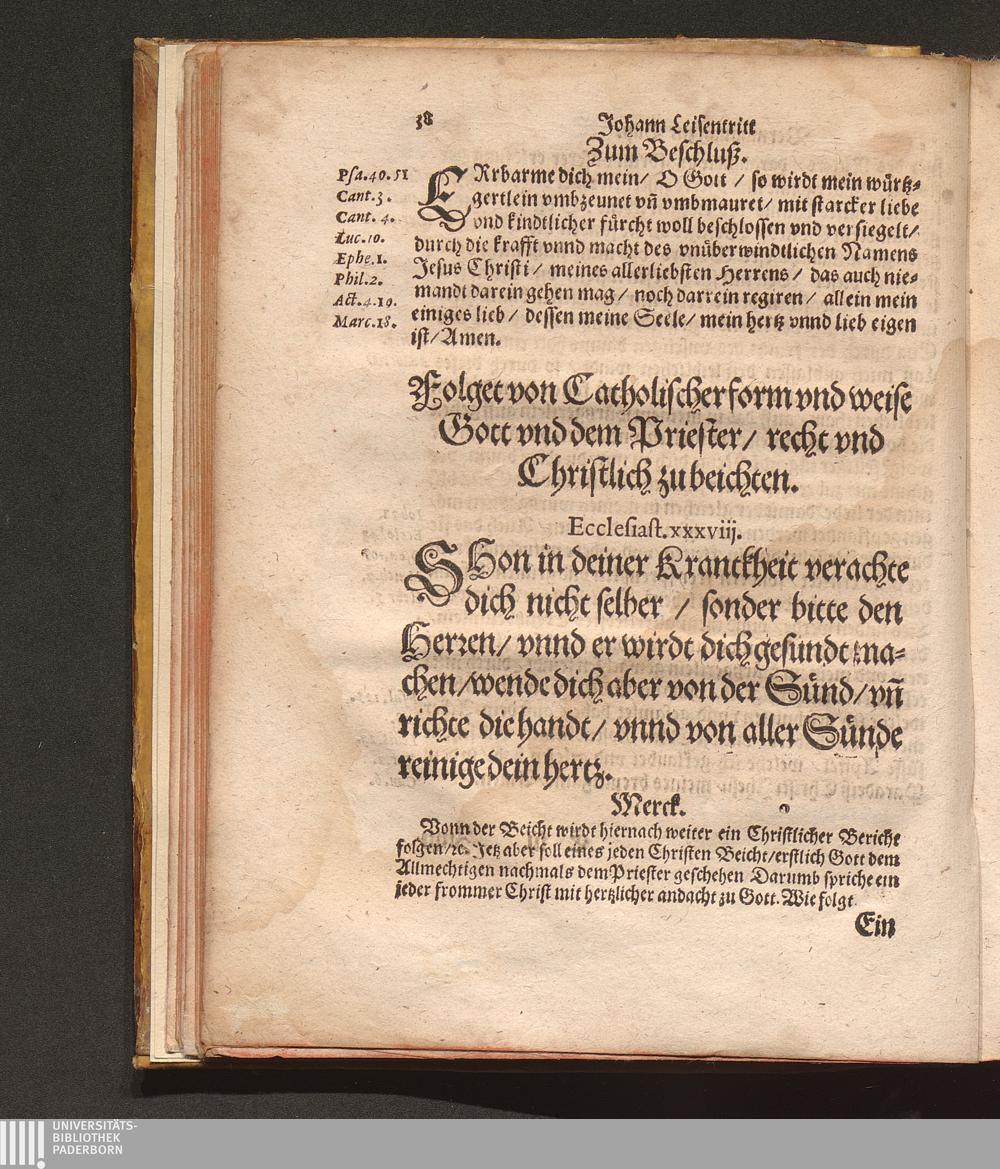 38 Johann Leisentritt
Zum Beschluß.
Psa.40.51
Cant.3.
Cant. 4.
Luc.10.
Ephe.1.
Phil.2.
Act.4.19.
Marc.18.
ERbarme dich mein/ O Gott / so wirdt mein würtz-
gertlein vmbzeunet vñ vmbmauret/ mit starcker liebe
vnd kindtlicher fürcht woll beschlossen vnd versiegelt/
durch die krafft vnnd macht des vnüberwindtlichen Namens
Jesus Christi / meines allerliebsten Herrens / das auch nie-
mandt darein gehen mag / noch darrein regiren / allein mein
einiges lieb / dessen meine Seele/ mein hertz vnnd lieb eigen
ist/ Amen.
Folget von Catholischer form vnd weise
Gott vnd dem Priester/ recht vnd
Christlich zu beichten.
Ecclesiast.xxxviij.
SHon in deiner Kranckheit verachte
dich nicht selber / sonder bitte den
Herren/ vnnd er wirdt dich gesundt ma-
chen/wende dich aber von der Sünd/ vñ
richte die handt/ vnnd von aller Sünde
reinige dein hertz.
Merck.
Vonn der Beicht wirdt hiernach weiter ein Christlicher Bericht
folgen/ꝛc. Jetz aber soll eines jeden Christen Beicht/erstlich Gott dem
Allmechtigen nachmals dem Priester geschehen Darumb spriche ein
jeder frommer Christ mit hertzlicher andacht zu Gott. Wie folgt.
Ein
UNIVERSITÄTS-
BIBLIOTHEK
PADERBORN